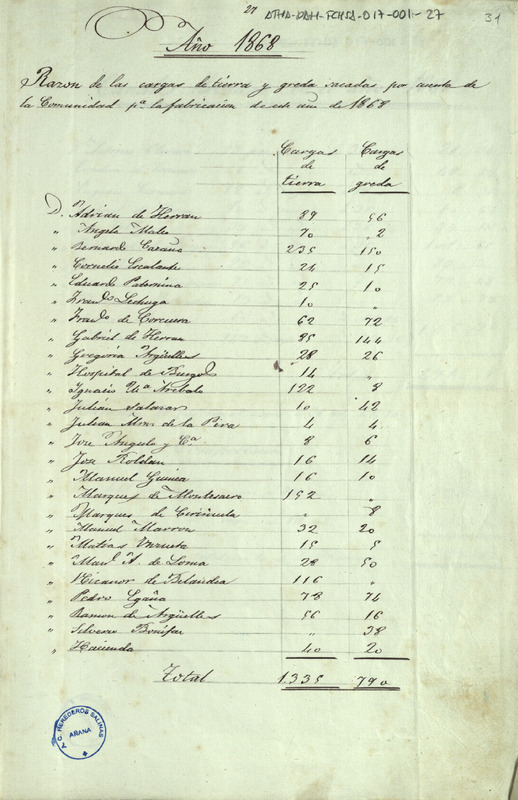 27 ATHA-DAH-FCHSA-017-001-27 31
Año 1868
Razon de las cargas de tierra y greda sacadas por cuenta de
la Comunidad pª la fabricacion de este año de 1868
Cargas de tierra Cargas de greda
D. Adrian de Herran 89 56
" Angela Males 70 2
" Bernardo Cazaña 235 150
" Cornelio Escalante 24 15
" Eduardo Paternina 25 10
" Franco Lechuga 10 "
" Franco de Corcuera 62 72
" Gabriel de Herran 85 144
" Gregoria Argüelles 28 26
" Hospital de Burgos 14 "
" Ignacio Mª Aribalo 122 8
" Julián Salazar 10 42
" Julian Mnz. de la Pera 4 4
" Jose Angulo y Cª 8 6
" Jose Roldan 16 14
" Manuel Guinea 16 10
" Marques de Montesacro 152 "
" Marques de Ciriñuela " 8
" Manuel Marron 32 20
" Matias Unzueta 15 5
" Manl A. de Loma 28 50
" Nicanor de Belandia 116 "
" Pedro Egaña 78 74
" Ramon de Argüelles 56 16
" Silverio Bonifaz " 38
" Hacienda 40 20
Total 1.335 790
T. C. HEREDEROS SALINAS
AÑANA